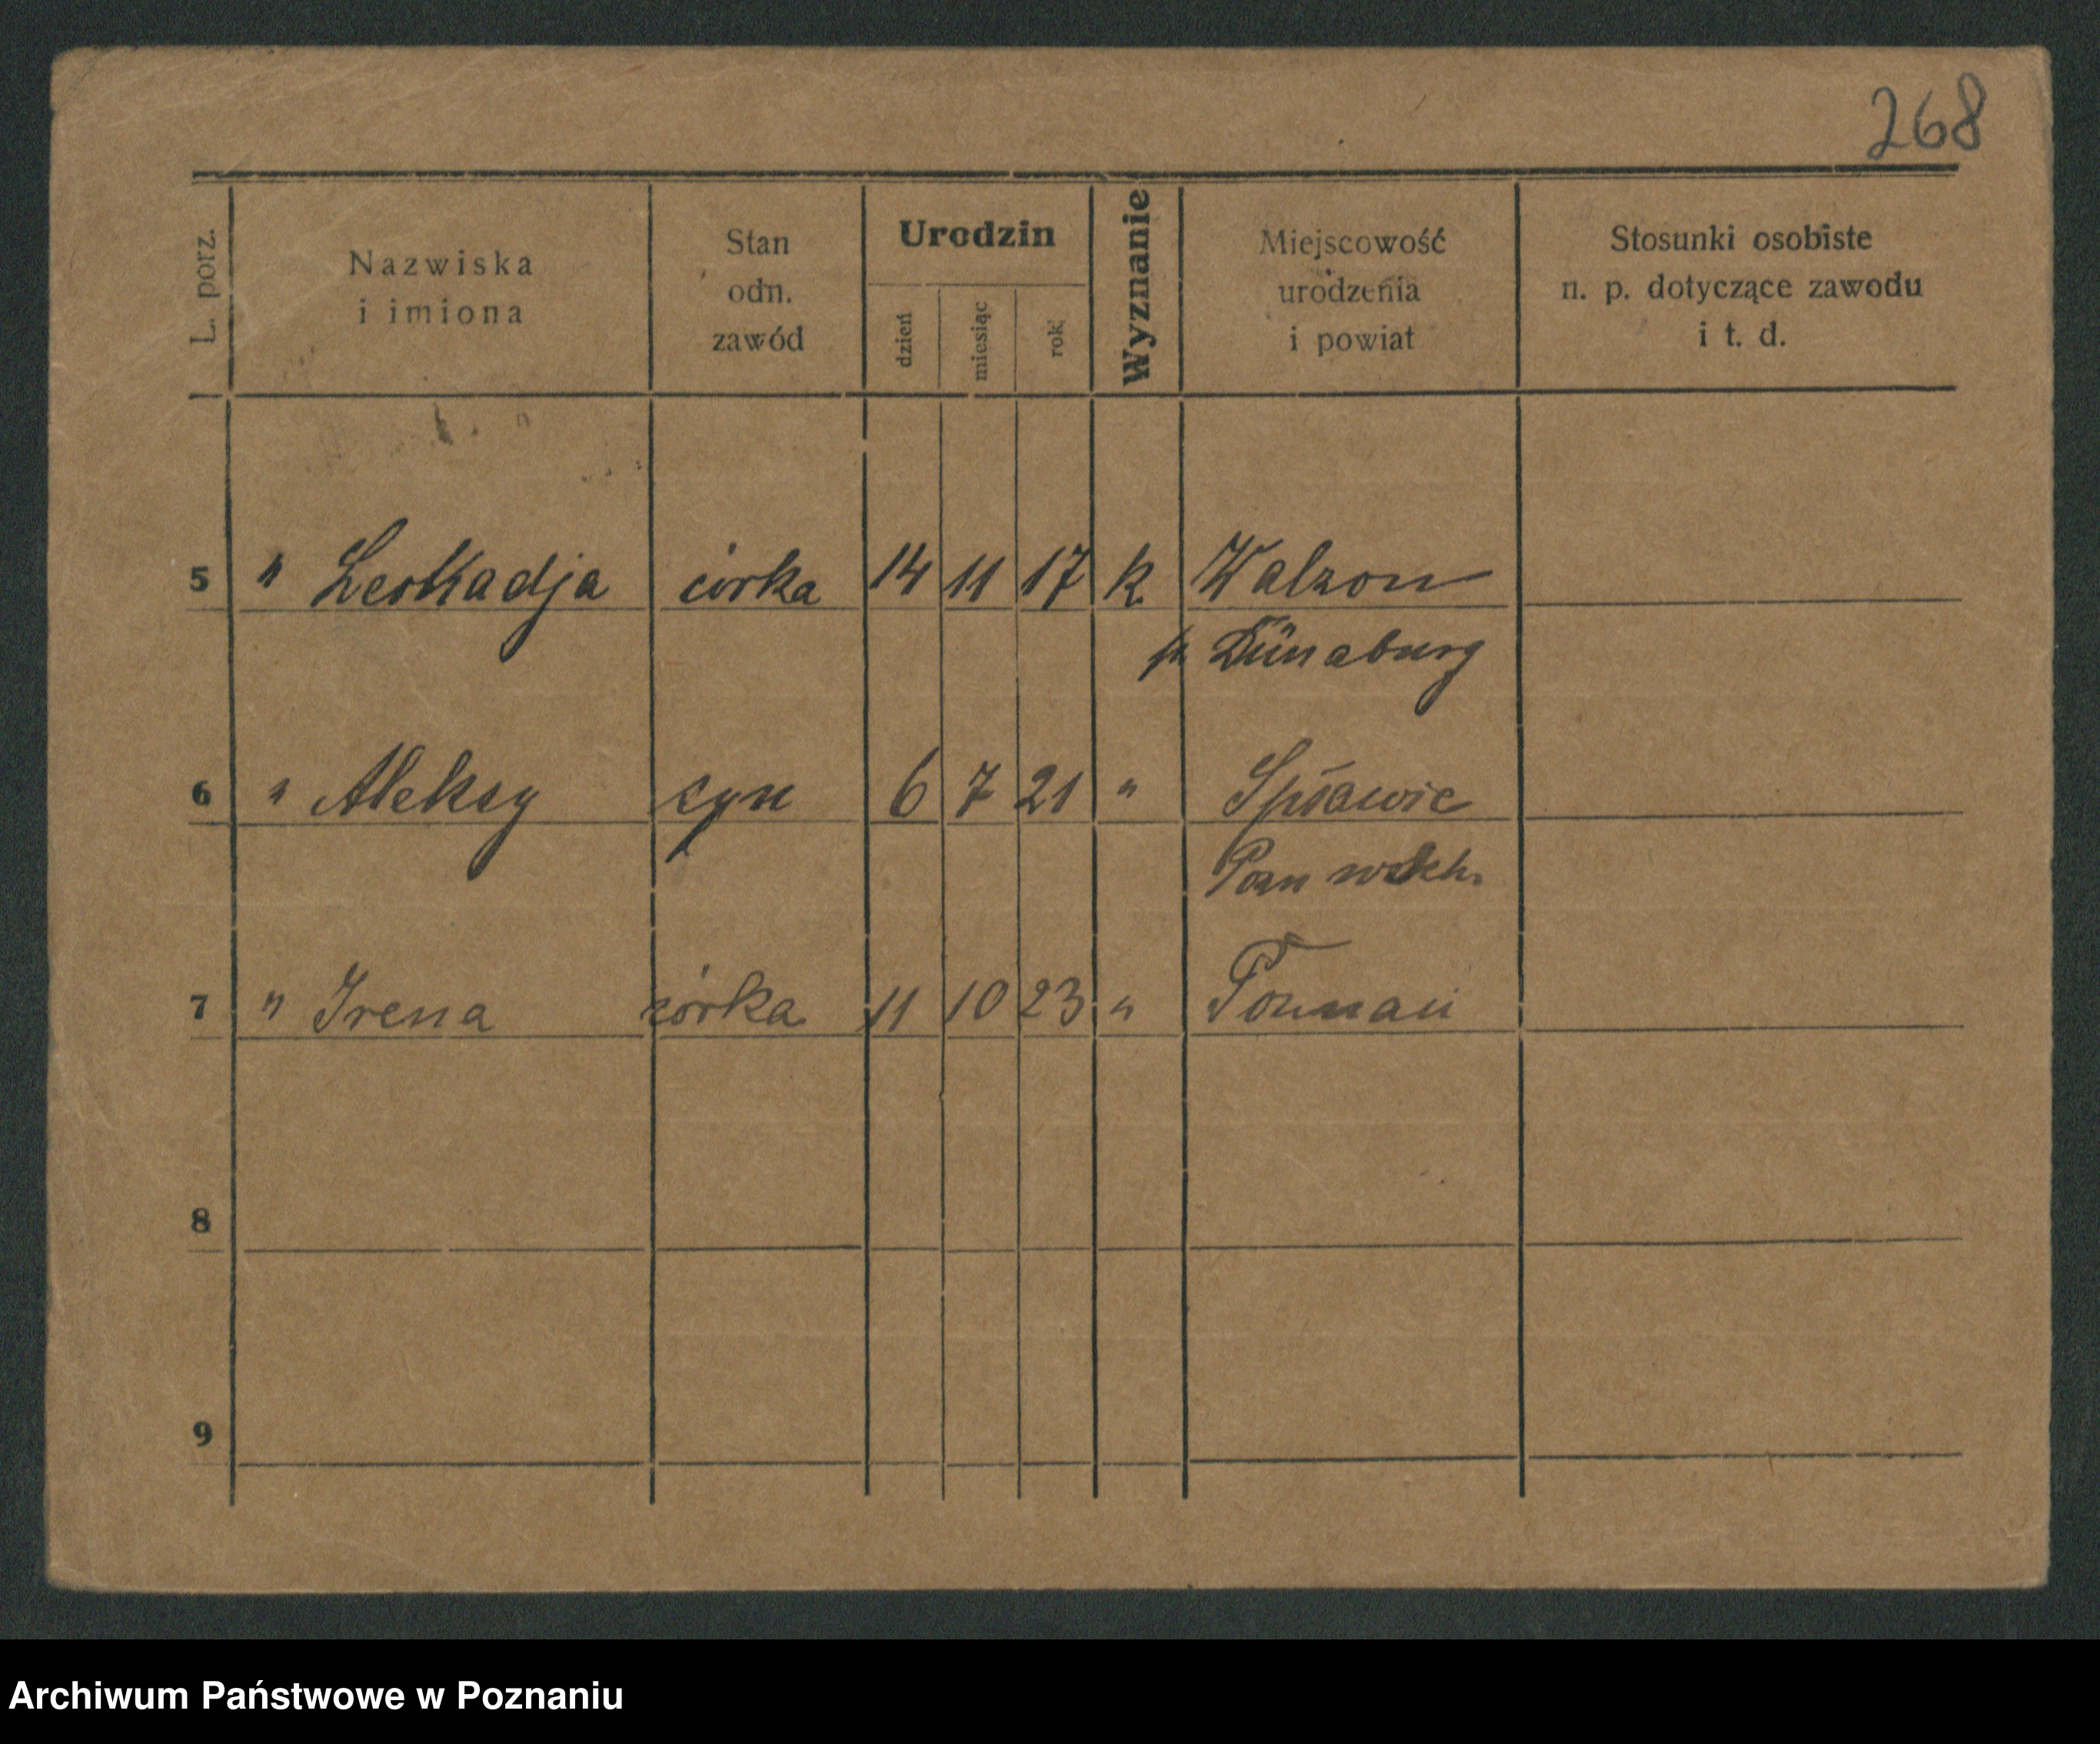 268
L. porz.
Nazwiska
i imiona
Stan
odn.
zawód
Urodzin
dzień
miesiąc
rok
Wyznanie
Miejscowość
urodzenia
i powiat
Stosunki osobiste
n. p. dotyczące zawodu
i t. d.
5 " Leokadja córka 14 11 17 k Walzon
p. Dünaburg
6 " Aleksy syn 6 7 21 " Spławie
Pozn wsch.
7 " Irena córka 11 10 23 " Poznań
8
9
Archiwum Państwowe w Poznaniu